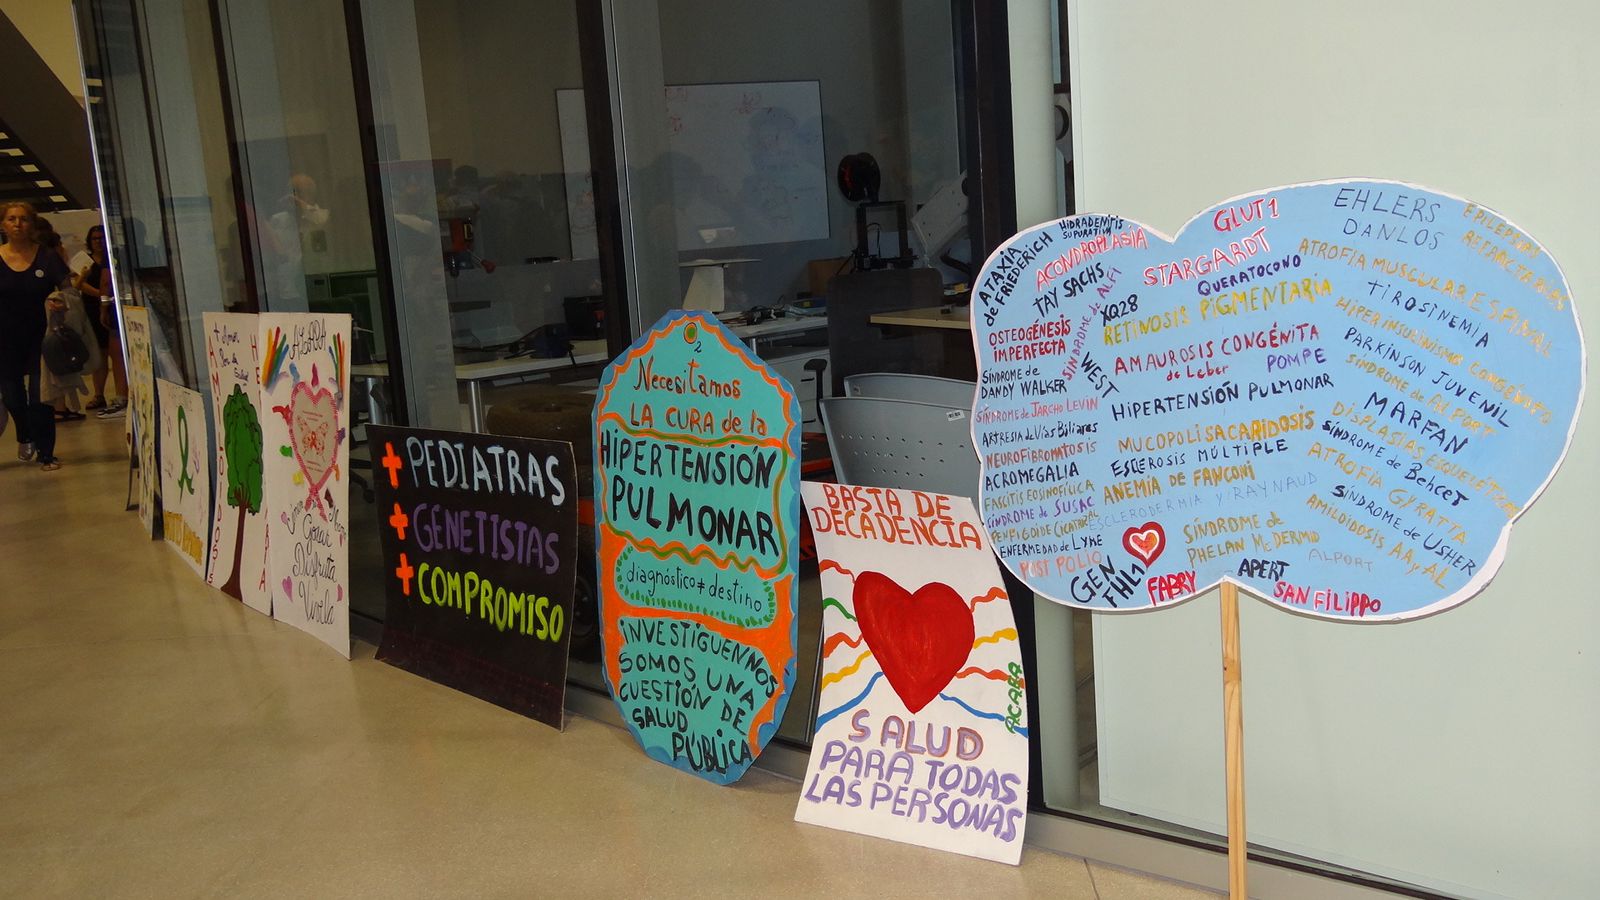 + Amor
ALAPA
Gozar
Disfruta
Vivirla
+ PEDIATRAS
+ GENETISTAS
+ COMPROMISO
2
Necesitamos
LA CURA de la
HIPERTENSIÓN
PULMONAR
diagnóstico ≠ destino
INVESTIGUENNOS
SOMOS UNA
CUESTIÓN DE
SALUD
PÚBLICA
BASTA DE
DECADENCIA
ACABA
SALUD
PARA TODAS
LAS PERSONAS
ATAXIA
de FRIEDERICH
HIDRADENITIS
SUPURATIVA
ACONDROPLASIA
TAY SACHS
SÍNDROME de ALFI
XQ28
OSTEOGÉNESIS
IMPERFECTA
WEST
SÍNDROME de
DANDY WALKER
SÍNDROME de JARCHO LEVIN
ARTRESIA de Vías Biliares
NEUROFIBROMATOSIS
ACROMEGALIA
FASCITIS EOSINOFÍLICA
SÍNDROME de SUSAC
PENFIGOIDE CICATRIZAL
ENFERMEDAD de LYME
POST POLIO
GEN
FHL1
GLUT1
STARGARDT
QUERATOCONO
RETINOSIS PIGMENTARIA
AMAUROSIS CONGÉNITA
de Leber
POMPE
HIPERTENSIÓN PULMONAR
MUCOPOLISACARIDOSIS
ESCLEROSIS MÚLTIPLE
ANEMIA DE FANCONI
ESCLERODERMIA y RAYNAUD
SÍNDROME de
PHELAN McDERMID
FABRY
APERT
ALPORT
SAN FILIPPO
EHLERS
DANLOS
EPILEPSIAS
REFRACTARIAS
ATROFIA MUSCULAR ESPINAL
TIROSINEMIA
HIPERINSULINISMO CONGÉNITO
PARKINSON JUVENIL
SÍNDROME de ALPORT
MARFAN
DISPLASIAS ESQUELÉTICAS
SÍNDROME de Behcet
ATROFIA GYRATTA
SÍNDROME de USHER
AMILOIDOSIS AA y AL